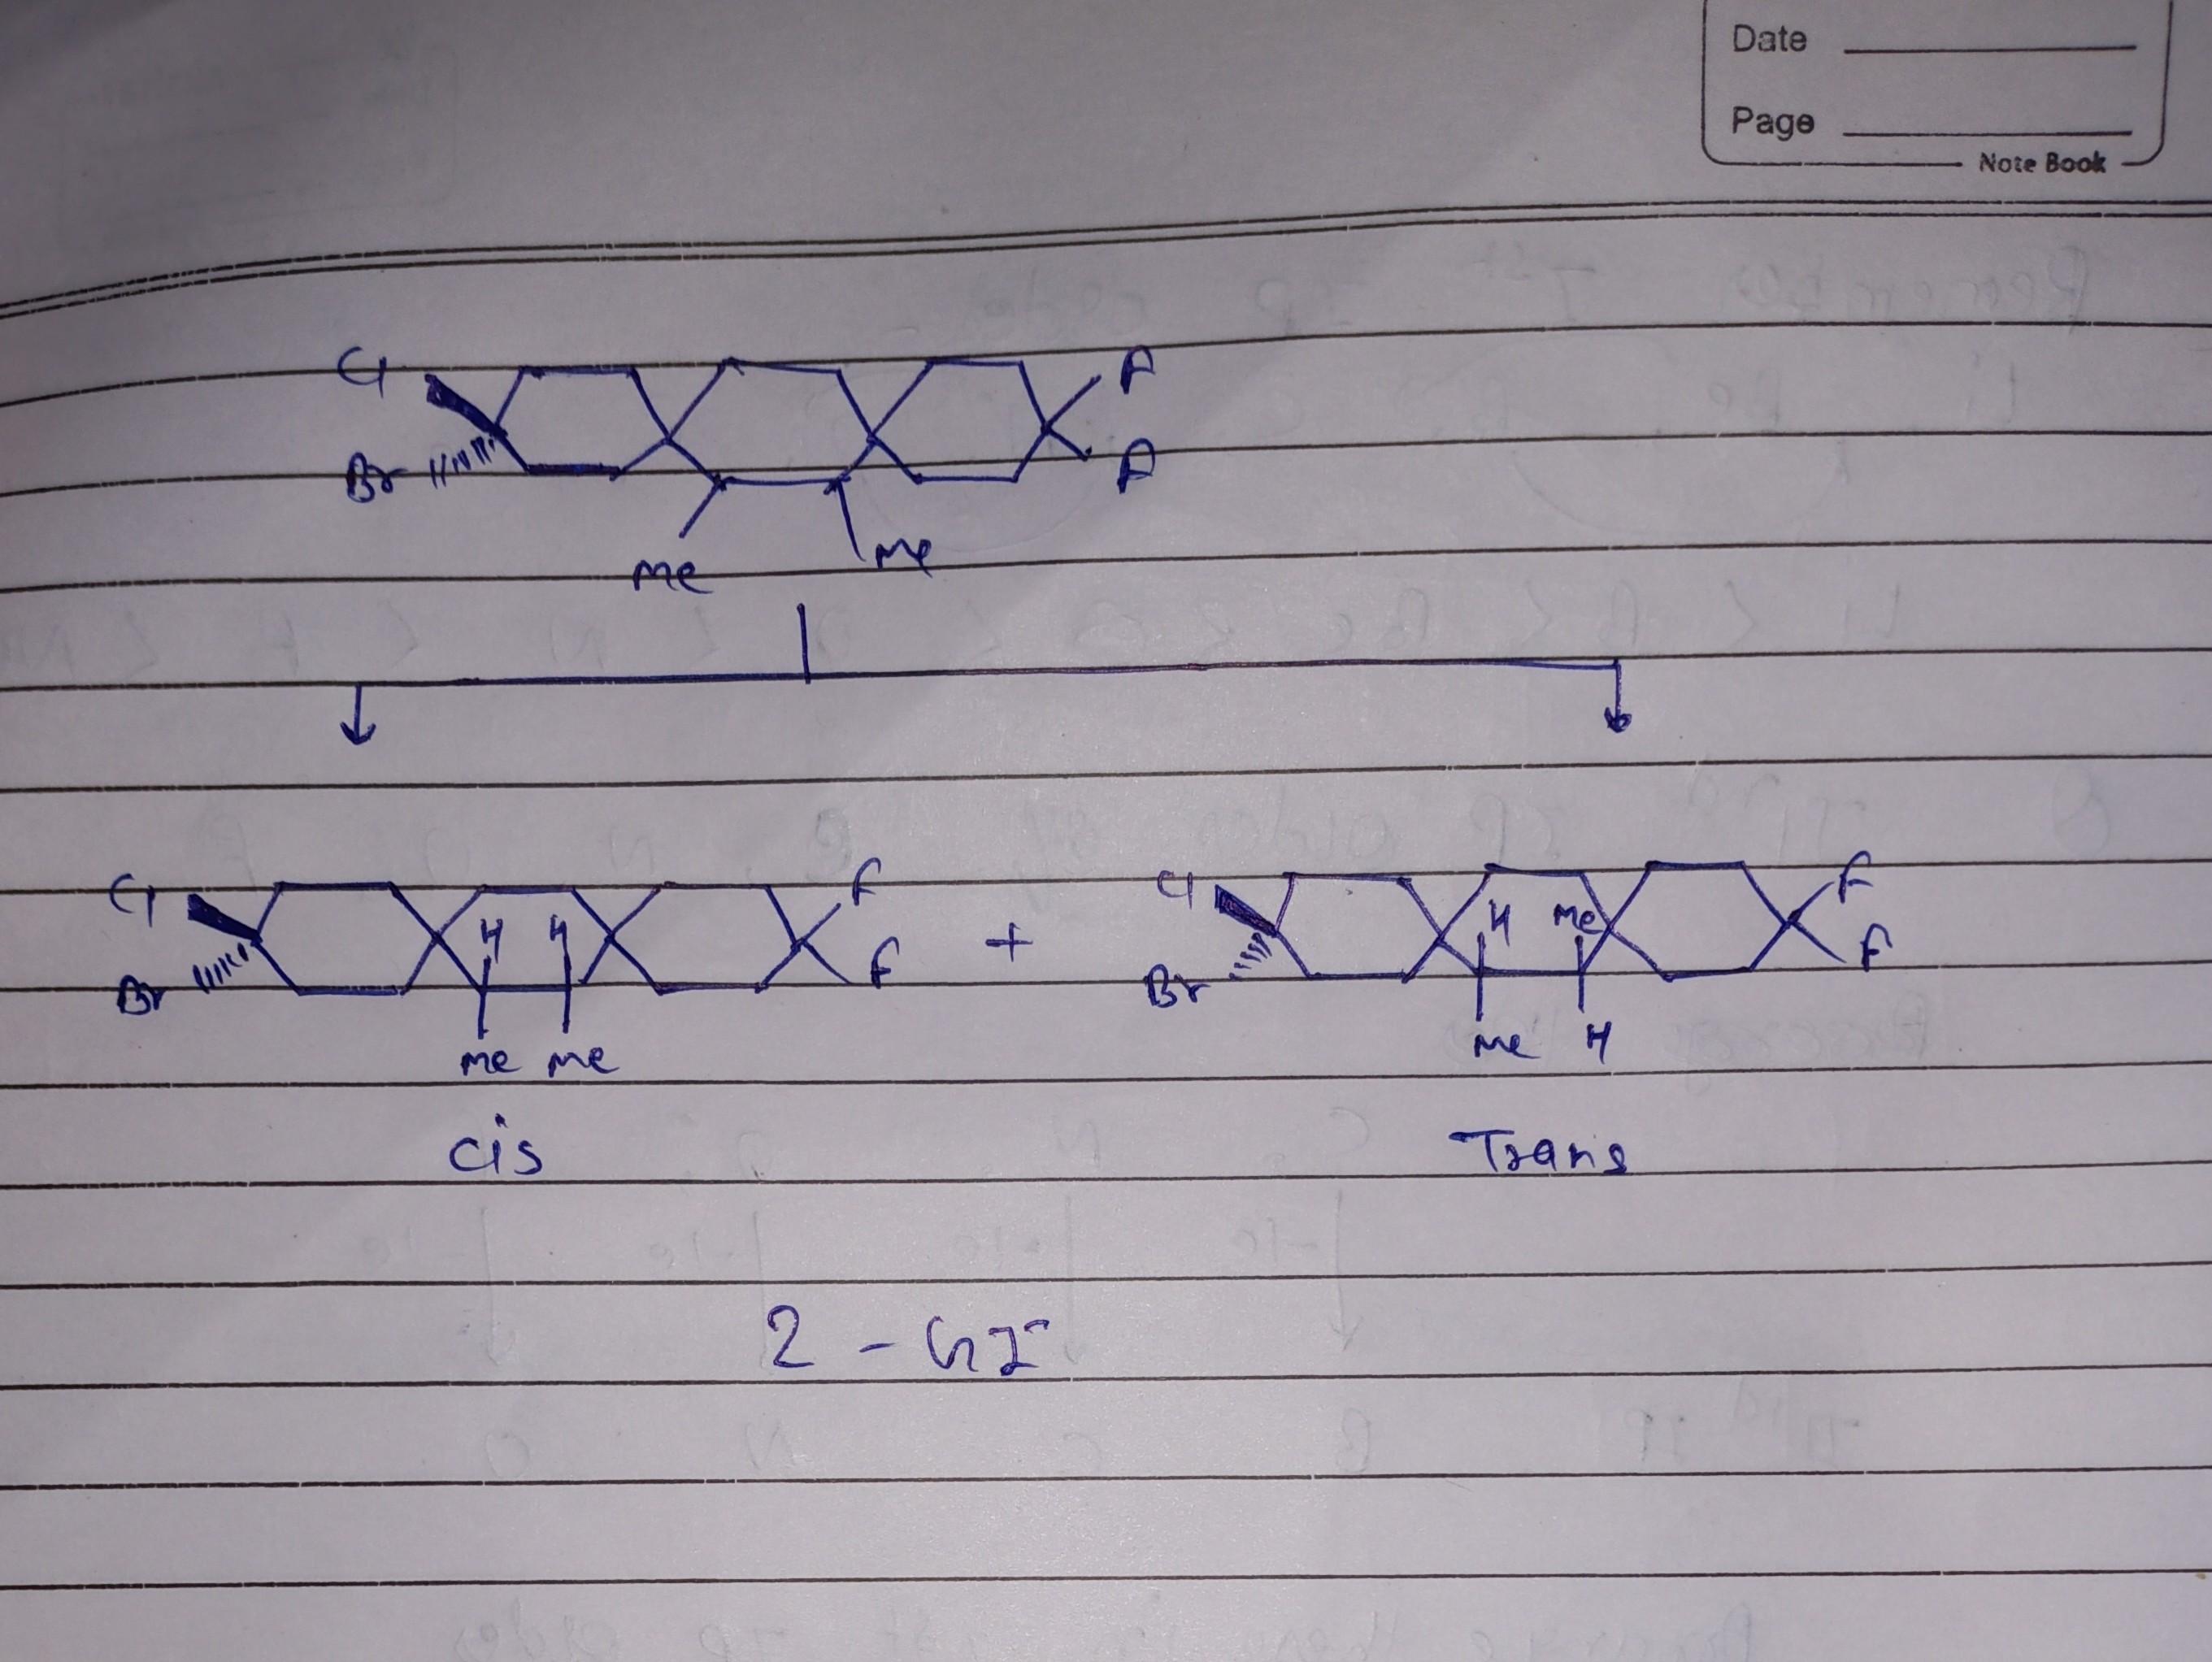 Date
Page
Note Book
Cl
F
Br
F
Me
Me
Cl
F
H
H
Br
F
Me
Me
+
Cl
F
H
Me
Br
F
Me
H
cis
Trans
2 - GI